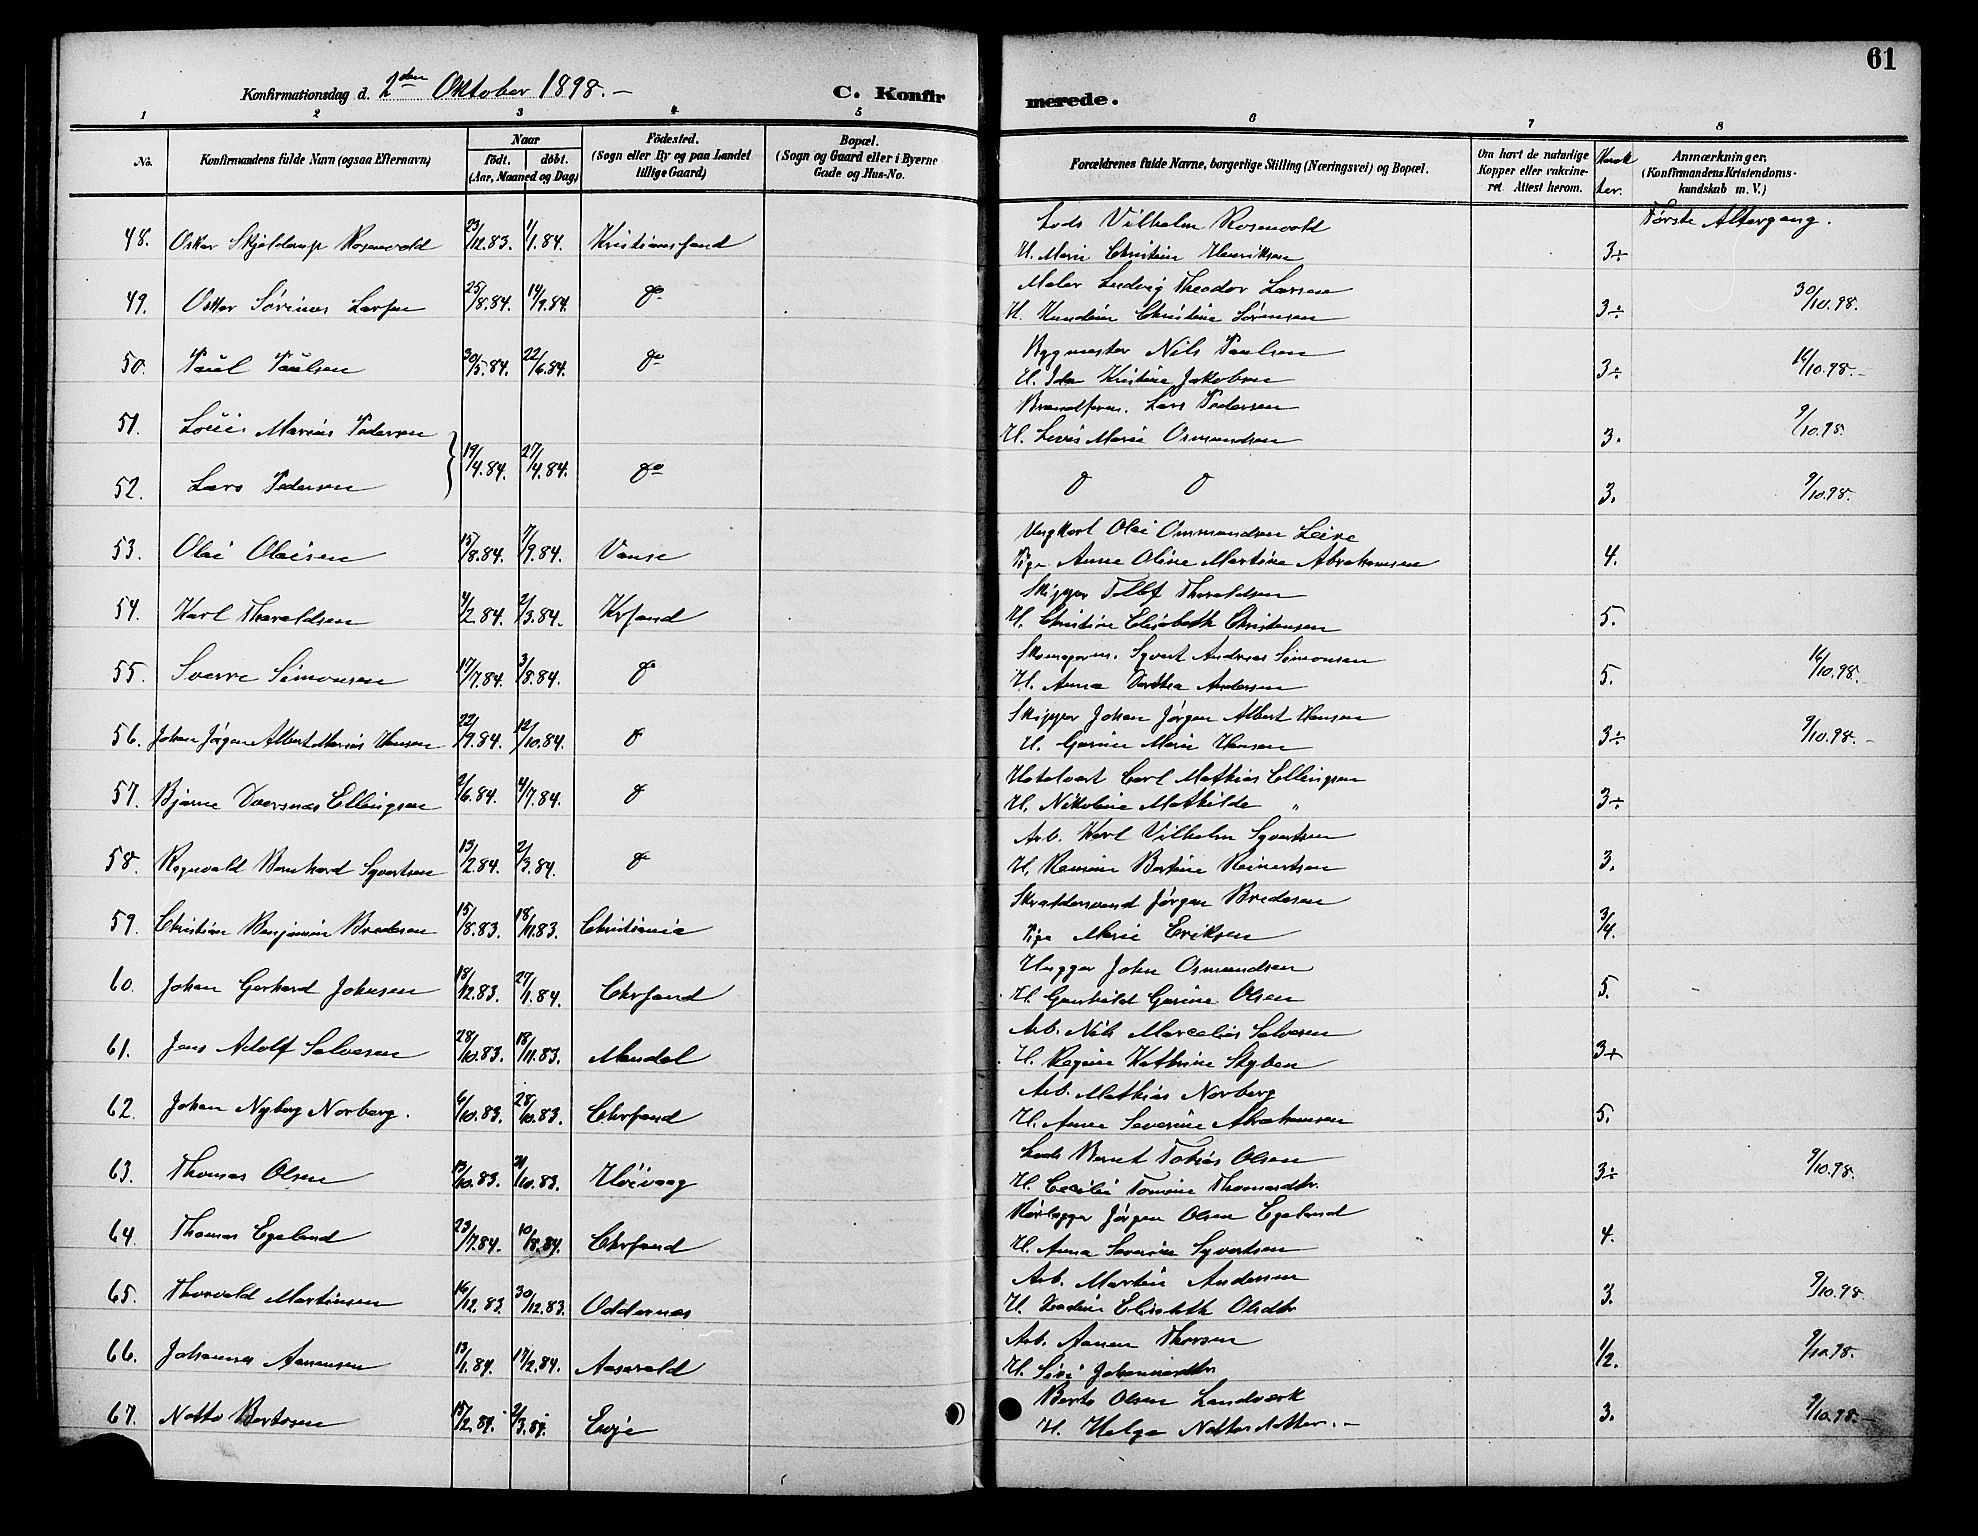 61
Konfirmationsdag d. 2den Oktober 1898. —
C. Konfir merede.
1 2 3 4 5 6 7 8
No.
Konfirmandens fulde Navn (ogsaa Efternavn)
Naar
født. døbt.
(Aar, Maaned og Dag)
Fødested.
(Sogn eller By og paa Landet
tillige Gaard)
Bopæl.
(Sogn og Gaard eller i Byerne
Gade og Hus-No.
Forældrenes fulde Navne, borgerlige Stilling (Næringsvei) og Bopæl.
Om havt de naturlige
Kopper eller vakcine-
ret. Attest herom.
Karak
ter.
Anmærkninger.
(Konfirmandens Kristendoms-
kundskab m. V.)
Første Altergang.
Lods Vilhelm Rosenvold
48. Oskar Skjelderup Rosenvold 23/12.83. 1/1.84. Kristianssand H. Marie Christine Henriksen 3÷
Maler Ludvig Theodor Larsen
49. Oskar Sørinus Larsen 25/8.84. 14/9.84. do H. Christine Sørensen 3÷ 30/10.98.
Bygmester Nils Paulsen
50. Paul Paulsen 30/5.84. 22/6.84. do H. Ida Kristine Jakobsen 3÷ 16/10.98.–
Lars Pedersen
51. Marius Pedersen H. Marie Osmundsen 3. 9/10.98.
19/4.84. 27/4.84. do
52. Lars Pedersen do do 3. 9/10.98.
Ungkarl Olai Ommundsen
53. Olai Olaisen 15/8.84. 7/9.84. Vanse Pige Anne Oline Martine Abrahamsen 4.
Skipper Tollef Thoraldsen
54. Karl Thoraldsen 4/2.84. 2/3.84. Krsand H. Christine Elisabeth Christensen 5.
Skomagerm. Syvert Andreas Simonsen
55. Sverre Simonsen 17/7.84. 3/8.84. do H. Anna Dorthea Andersen 5. 16/10.98.
Skipper Johan Jørgen Albert Hansen
56. Johan Jørgen Albert Marius Hansen 22/9.84. 12/10.84. do H. Marie Hansen 3÷ 9/10.98.–
Hotelvært Carl Mathias Ellingsen
57. Bjarne Ellingsen 2/6.84. 4/7.84. do H. Nikoline Mathilde „ 3÷
Arb. Karl Vilhelm Syvertsen
58. Ragnvald Bernhard Syvertsen 13/2.84. 2/3.84. do H. Bertine Reinertsen 3.
Skræddersvend Jørgen Bredesen
59. Christian Benjamin Bredesen 15/8.83. 18/11.83. Christiania Pige Marie Eriksen 3/4.
Hugger John Osmundsen
60. Johan Gerhard Johnsen 18/12.83. 27/1.84. Chrsand H. Gunhild Olsen 5.
Arb. Nils Marcelius Salvesen
61. Jens Adolf Salvesen 28/10.83. 18/11.83. Mandal H. Regine Kathrine 3+
Arb. Mathias Norberg
62. Johan Nyberg Norberg. 6/10.83. 28/10.83. Chrsand H. Anne Severine Abrahamsen 5.
Lods Bernt Tobias Olsen
63. Thomas Olsen 13/10.83. 21/10.83. Høivaag H. Cecilie Tomine 3÷ 9/10.98.
Jørgen Olsen Egeland
64. Thomas Egeland 23/7.84. 10/8.84. Chrsand H. Anna Severine Syvertsen 4.
Arb. Martin Andersen
65. Thorvald Martinsen 16/12.83. 30/12.83. Oddernes H. Elisabeth Olsdtr 3. 9/10.98.
Arb. Aanen Thorsen
66. Johannes Aanensen 13/1.84. 17/2.84. Aaseral H. Siri Johannesdtr 1/2. 9/10.98.
Berto Olsen Landværk
67. Notto Bertosen 15/2.84. 2/3.84. Evje H. Helge 3. 9/10.98.–